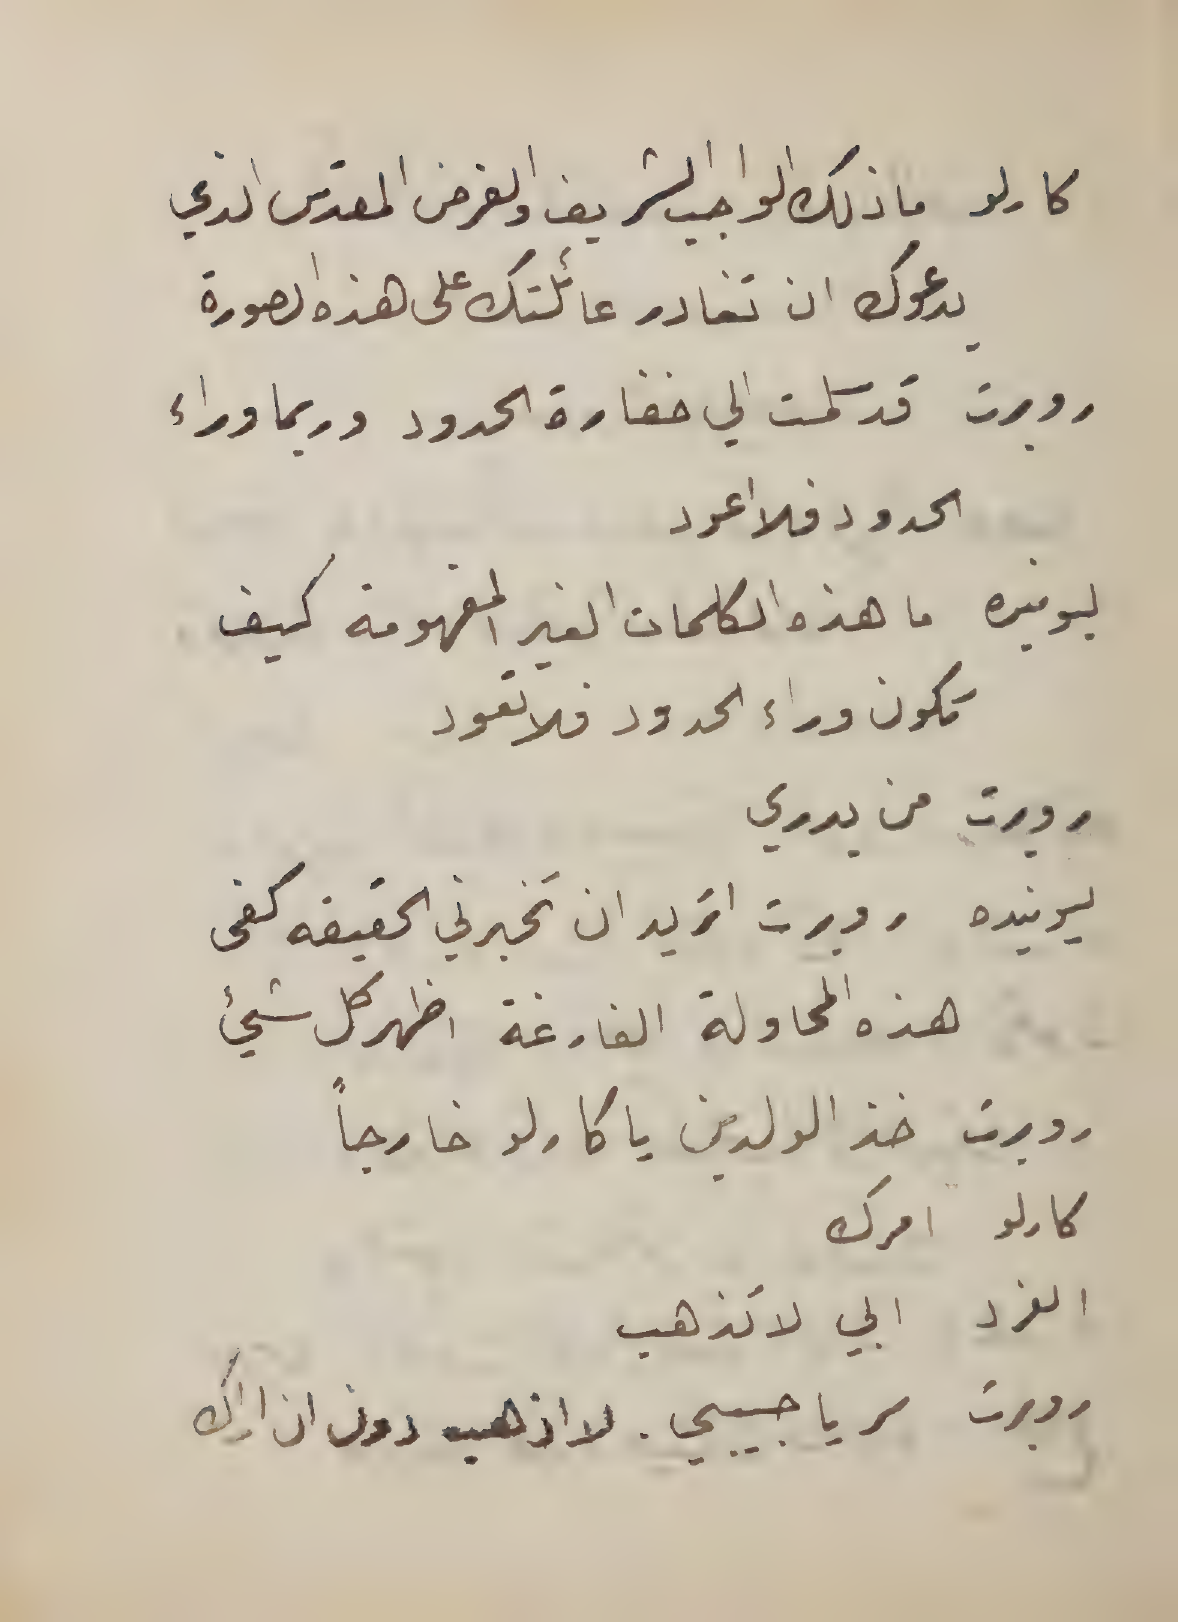 كارلو ماذلك الواجب الشريف والفرض المقدس الذي
يدعوك ان تغادر عائلتك على هذه الصورة
روبرت قد سلمت الي خفارة الحدود وربما وراء
الحدود فلا اعود
ليونيده ما هذه الكلمات الغير المفهومة كيف
تكون وراء الحدود فلا تعود
روبرت من يدري
ليونيده روبرت اتريد ان تخبرني الحقيقه كفى
هذه المحاولة الفارغة اظهر كل شيئ
روبرت خذ الولدين يا كارلو خارجاً
كارلو امرك
الفرد ابي لا تذهب
روبرت سر يا حبيبي . لا اذهب دون ان اراك